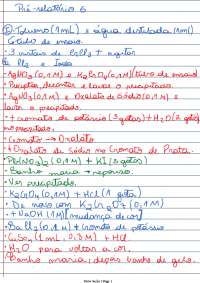 Pré-relatório 6
① Tolueno (1mL) e água destilada (1ml)
② tubo de ensaio
• AgNO3 (0,1M) e K2CrO4 (0,1M) (tubo de ensaio)
• Precipitar, decantar e lavar o precipitado
• AgNO3 (0,1M) e Oxalato de Sódio (0,1M) e
lavar o precipitado.
• + cromato de potássio (3 gotas) + H2O (2 gotas)
no precipitado.
• Cromato → Oxalato
• + Oxalato de Sódio no Cromato de Prata.
• Pb(NO3)2 (0,1M) + KI (3 gotas)
• Banho maria → repouso.
• Ver precipitado.
• K2CrO4 (0,1M) + HCl (1 gota)
• De novo com K2Cr2O7 (0,1M)
+ NaOH (1M) [mudança de cor]
• BaCl2 (0,1M) + cromato de potássio
• H2O para voltar a cor.
• Banho maria; depois banho de gelo.